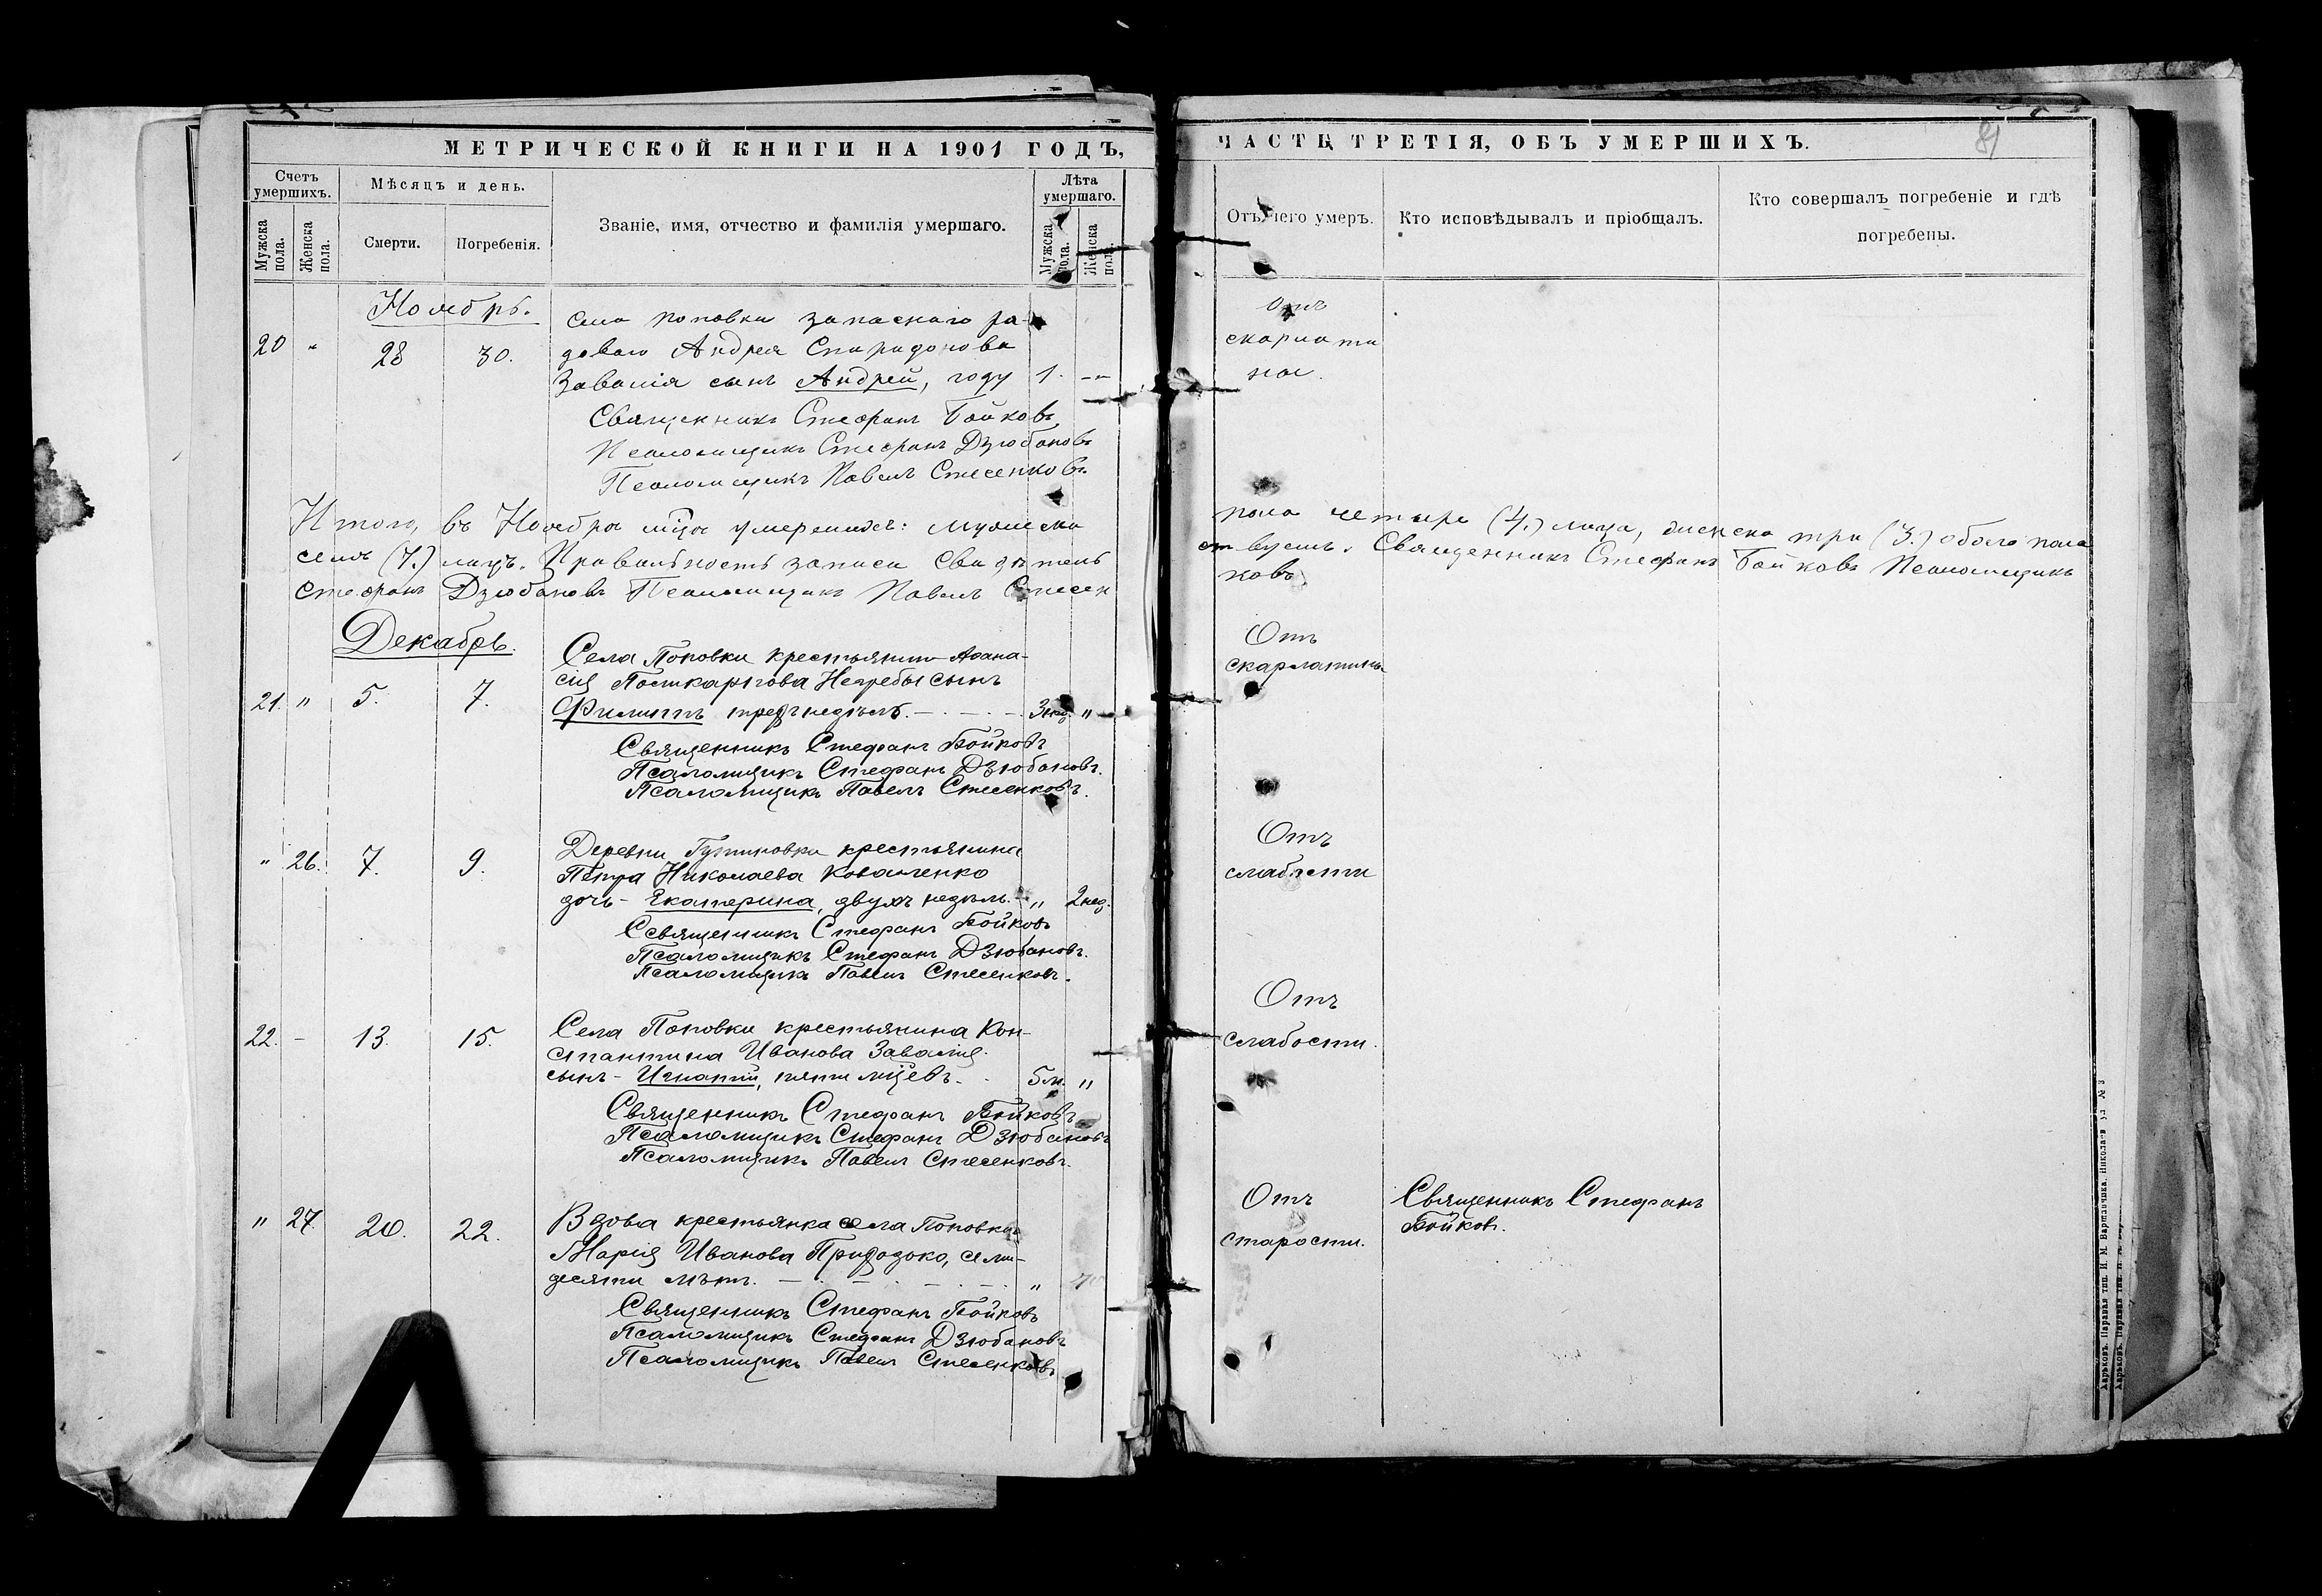 МЕТРИЧЕСКОЙ КНИГИ НА 1901 ГОДЪ,
Счетъ умершихъ.
Мужска пола.
Женска пола.
Мѣсяцъ и день.
Смерти.
Погребенія.
Званіе, имя, отчество и фамилія умершаго.
Лѣта умершаго.
Мужска пола.
Женска пола.
Ноябрь.
20 „ 28 30.
Села Поповки запаснаго ря-
доваго Андрея Спиридонова
Завалія сынъ Андрей, году 1. „
Священникъ Стефанъ Бойковъ
Псаломщикъ Стефанъ Дзюбановъ
Псаломщикъ Павелъ Стесенковъ.
Итого, въ Ноябрѣ мцѣ умершихъ: мужеска
семь (7.) лицъ. Правильность записи свидѣтель
Стефанъ Дзюбановъ Псаломщикъ Павелъ Стесен
Декабрь.
21. „ 5. 7.
Села Поповки крестьянина Аѳана-
сія Поликарпова Негребы сынъ
Филиппъ трехъ недѣль. 3 нед. „
Священникъ Стефанъ Бойковъ
Псаломщикъ Стефанъ Дзюбановъ.
Псаломщикъ Павелъ Стесенковъ.
„ 26. 7. 9.
Деревни крестьянина
Петра Николаева Коваленко
дочь - Екатерина, двухъ недѣль. „ 2 нед.
Священникъ Стефанъ Бойковъ
Псаломщикъ Стефанъ Дзюбановъ.
Псаломщикъ Павелъ Стесенковъ.
22. - 13. 15.
Села Поповки крестьянина Кон-
стантина Иванова Завалія
сынъ - Игнатій, пяти мцевъ. 5 м. „
Священникъ Стефанъ Бойковъ
Псаломщикъ Стефанъ Дзюбановъ
Псаломщикъ Павелъ Стесенковъ.
„ 27. 20. 22.
Вдова крестьянка села Поповки
Марія Иванова Приходько, семи-
десяти лѣтъ. „ 70
Священникъ Стефанъ Бойковъ
Псаломщикъ Стефанъ Дзюбановъ
Псаломщикъ Павелъ Стесенковъ
ЧАСТЬ ТРЕТІЯ, ОБЪ УМЕРШИХЪ.
81
Отъ чего умеръ.
Кто исповѣдывалъ и пріобщалъ.
Кто совершалъ погребеніе и гдѣ
погребены.
Отъ
скарлати
ны.
пола четыре (4.) лица, женска три (3.) обоего пола
ствуемъ. Священникъ Стефанъ Бойковъ Псаломщикъ
ковъ
Отъ
скарлатины
Отъ
слабости
Отъ
слабости.
Отъ
старости.
Священникъ Стефанъ
Бойковъ.